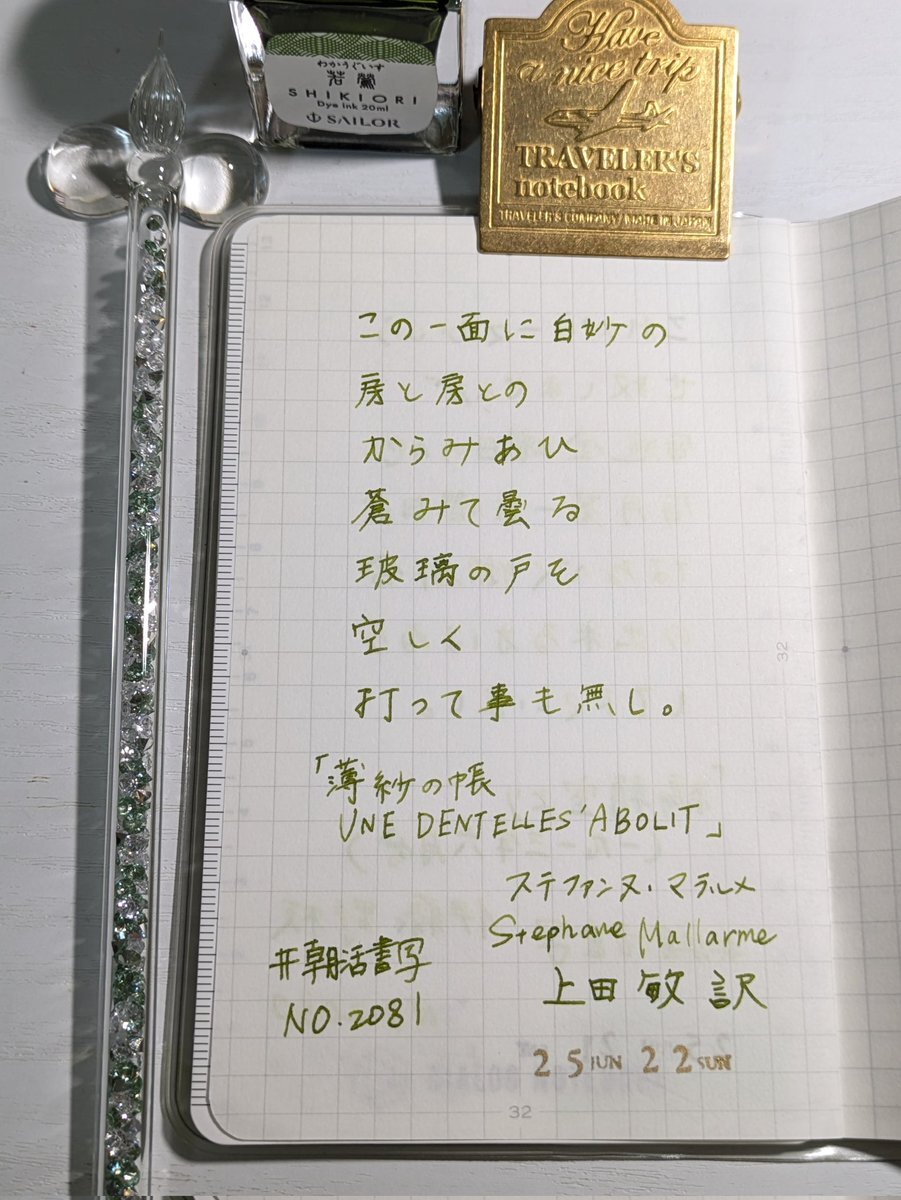 わかうぐいす
若鶯
SHIKIORI
Dye ink 20ml
SAILOR
Have
a nice trip
TRAVELER'S
notebook
TRAVELER'S COMPANY MADE IN JAPAN
この一面に白妙の
房と房との
からみあひ
蒼みて曇る
玻璃の戸を
空しく
打って事も無し。
「薄紗の帳
UNE DENTELLES'ABOLIT」
ステファンヌ・マラルメ
Stephane Mallarme
上田敏訳
#朝活書写
NO.2081
25 JUN 22 SUN
32
32